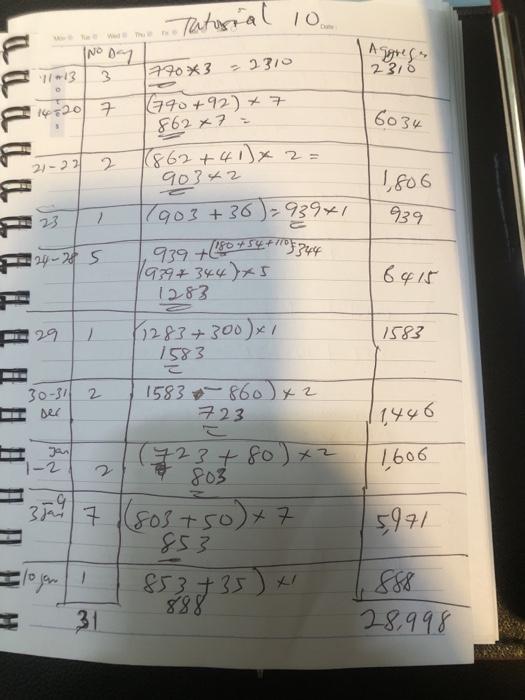 Tutorial 10
Date:
No Day
Aggregate
11-13 3 770 × 3 = 2310 2310
14-20 7 (770+92) × 7
862 × 7 = 6034
21-22 2 (862 + 41) × 2 =
903 × 2 1,806
23 1 (903 + 36) = 939 × 1 939
24-28 5 939 + (180+54+110) 344
(939 + 344) × 5 6415
1283
29 1 (1283 + 300) × 1 1583
1583
30-31 2 1583 - 860) × 2
Dec 723 1,446
Jan
1-2 2 (723 + 80) × 2 1,606
803
3-9
Jan 7 (803 + 50) × 7 5,971
853
10 Jan 1 853 + 35) × 1 888
888
31 28,998